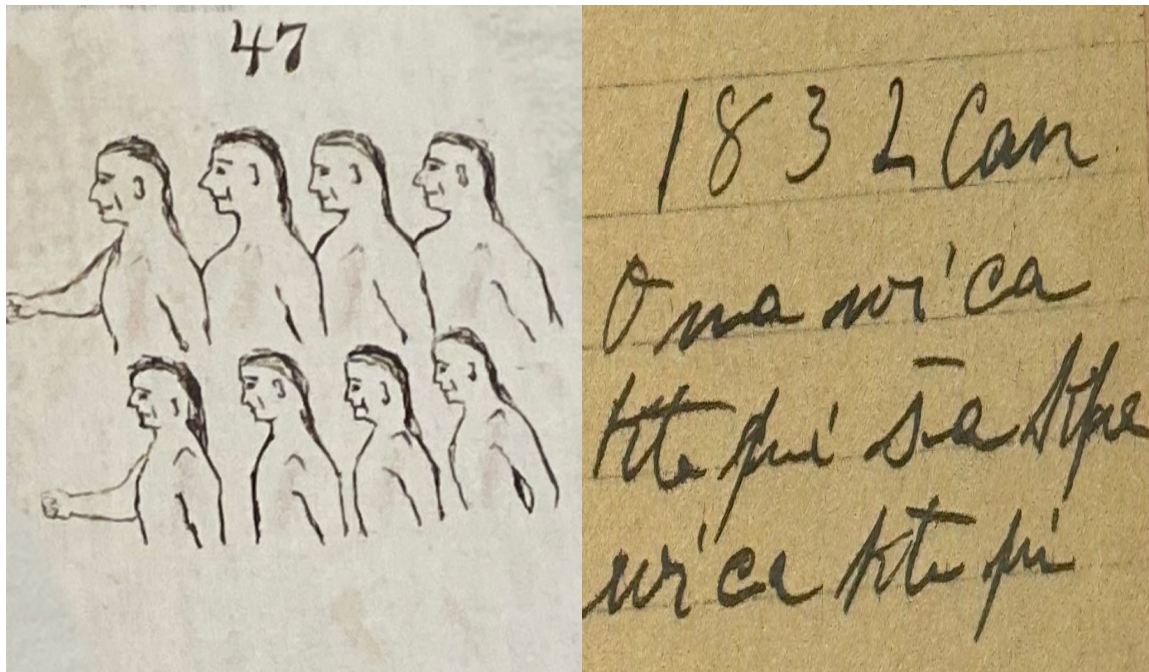 47
1832 Can
Ona wi'ca
kte pi s̄akpe
wi'ca kte pi